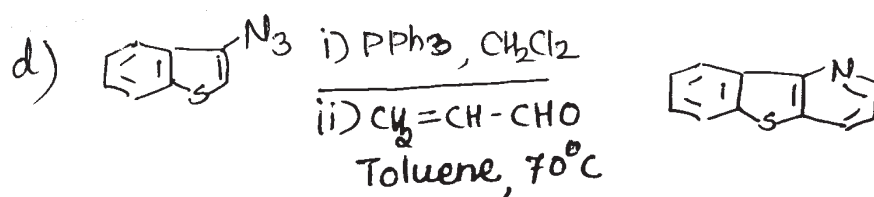 d)
N3
S
i) PPh3, CH2Cl2
ii) CH2=CH-CHO
Toluene, 70°C
N
S